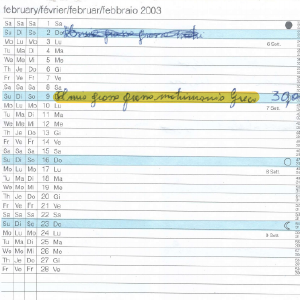 february/février/februar/febbraio 2003
Sa Sa Sa 1 Sa
Su Di So 2 Do
Mo Lu Mo 3 Lu 6 Set.
Tu Ma Di 4 Ma
We Me Mi 5 Me
Th Je Do 6 Gi
Fr Ve Fr 7 Ve
Sa Sa Sa 8 Sa
Su Di So 9 grosso grosso matrimonio
Mo Lu Mo 10 Lu 7 Set.
Tu Ma Di 11 Ma
We Me Mi 12 Me
Th Je Do 13 Gi
Fr Ve Fr 14 Ve
Sa Sa Sa 15 Sa
Su Di So 16 Do
Mo Lu Mo 17 Lu 8 Set.
Tu Ma Di 18 Ma
We Me Mi 19 Me
Th Je Do 20 Gi
Fr Ve Fr 21 Ve
Sa Sa Sa 22 Sa
Su Di So 23 Do
Mo Lu Mo 24 Lu 9 Set.
Tu Ma Di 25 Ma
We Me Mi 26 Me
Th Je Do 27 Gi
Fr Ve Fr 28 Ve